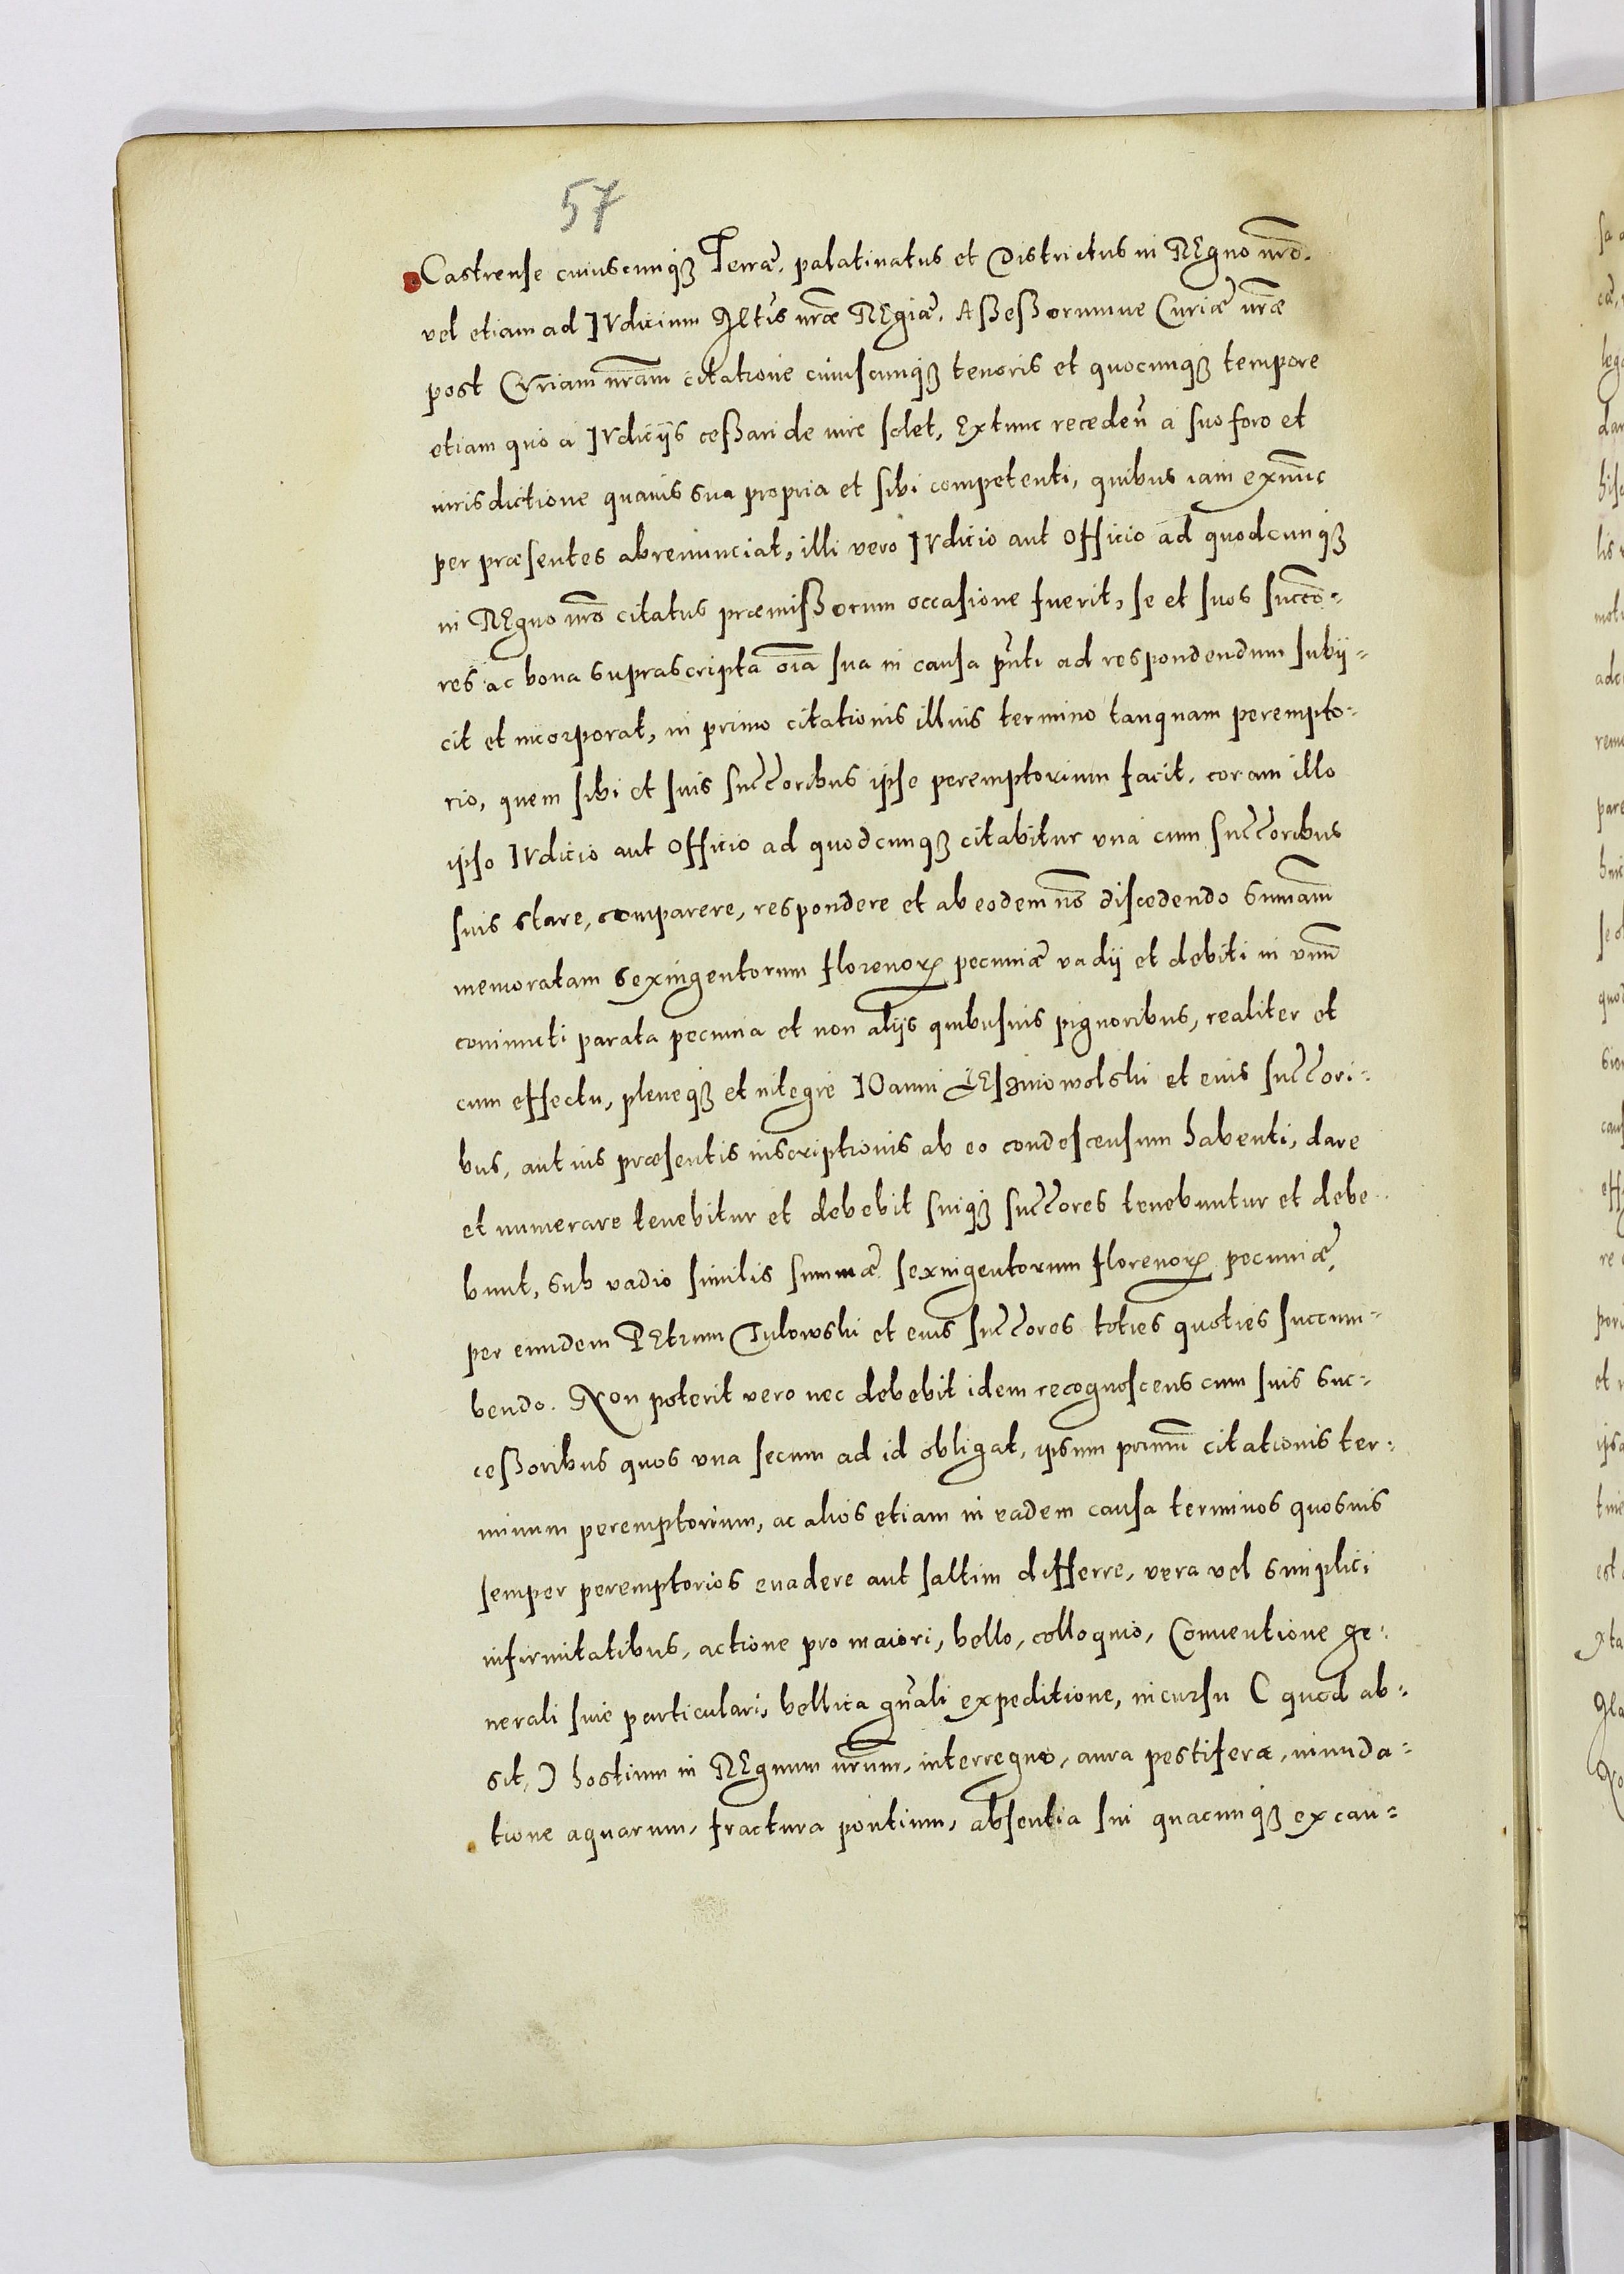 57
Castrense cuiuscunqȝ Terræ, palatinatus et Districtus in REgno nr̃o.
vel etiam ad IVdicium Mltis nr̃æ REgiæ, Aßeßorumue Curiæ nr̃æ
post CVriam nr̃am citatione cuiuscunqȝ tenoris et quocunqȝ tempore
etiam quo a IVdicijs ceßari de iure solet, Extunc receden̄ a suo foro et
iurisdictione quauis sua propria et sibi competenti, quibus iam exnunc
per præsentes abrenunciat, illi vero IVdicio aut Officio ad quodcunqȝ
in REgno nr̃o citatus præmißorum occasione fuerit, se et suos succo-
res ac bona suprascripta oīa sua in causa pñti ad respondendum subij-
cit et incorporat, in primo citationis illius termino tanquam perempto-
rio, quem sibi et suis succoribus ipse peremptorium facit, coram illo
ipso IVdicio aut Officio ad quodcunqȝ citabitur vna cum succoribus
suis stare, comparere, respondere et ab eodem nō discedendo summam
memoratam sexingentorum florenoꝝ pecuniæ vadij et debiti in vnū
coniuncti parata pecunia et non alijs quibusuis pignoribus, realiter et
cum effectu, pleneqȝ et integre IOanni LEsniowolski et eius succori-
bus, aut ius præsentis inscriptionis ab eo condescensum habenti, dare
et numerare tenebitur et debebit suiqȝ succores tenebuntur et debe-
bunt, sub vadio similis summæ sexingentorum florenoꝝ pecuniæ,
per eundem PEtrum Culowski et eius succores toties quoties succum-
bendo. Non poterit vero nec debebit idem recognoscens cum suis suc-
ceßoribus quos vna secum ad id obligat, ipsum primū citationis ter-
minum peremptorium, ac alios etiam in eadem causa terminos quosuis
semper peremptorios euadere aut saltim differre, vera vel simplici
infirmitatibus, actione pro maiori, bello, colloquio, Conuentione ge-
nerali siue particulari, bellica gn̄ali expeditione, incursu ( quod ab-
sit, ) hostium in REgnum nr̃um, interregno, aura pestifera, inunda-
tione aquarum, fractura pontium, absentia sui quacunqȝ ex cau-